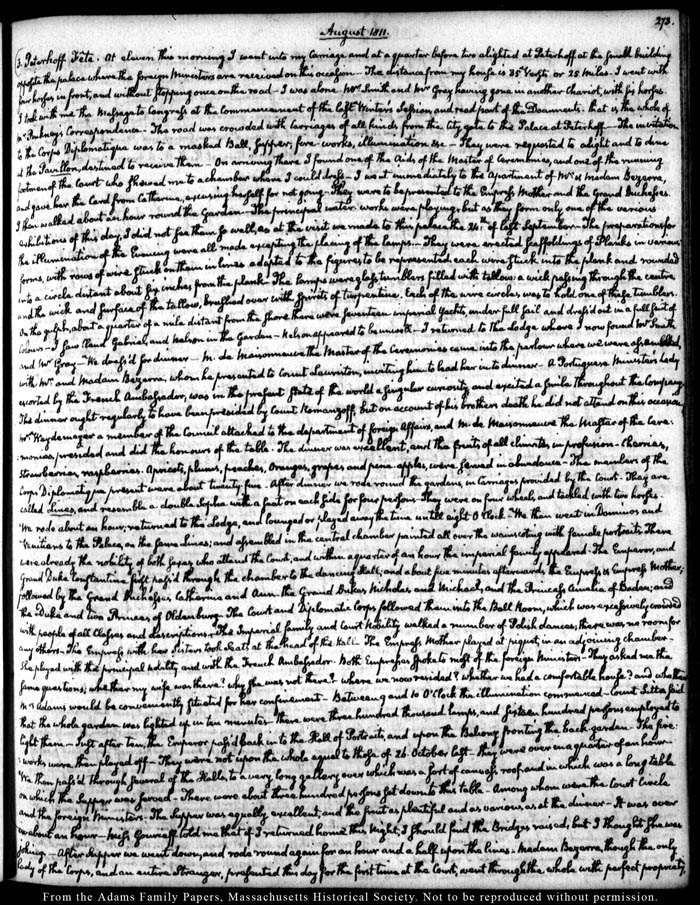 273.
August 1811.
3. Peterhoff Fête. At eleven this morning I went into my Carriage and at a quarter before two alighted at Peterhoff at the small building
opposite the palace where the foreign Ministers are received on this occasion — The distance from my house is 35 Versts or 25 Miles. I went with
four horses in front, and without stopping once on the road — I was alone Mrs Smith and Mr Gray having gone in another Chariot, with six horses.
I took with me the Message to Congress at the Commencement of the last Winter's Session and read part of the Documents. that is the whole of
Mr Pinkney's Correspondence — The road was crowded with Carriages of all kinds from the City gate to the Palace at Peterhoff — The invitation
to the Corps Diplomatique was to a masked Ball, Supper, fire-works, illumination &c — They were requested to alight and to dine
at the Pavillon, destined to receive them — On arriving there I found one of the Aids of the Master of Ceremonies, and one of the running
footmen of the Court who shewed me to a chamber where I could dress — I went immediately to the apartment of Mr & Madam Bezerra,
and gave her the Card from Catherine, excusing herself for not going — They were to be presented to the Empress Mother and the Grand Duchesses.
I then walked about an hour round the Garden — The principal water-works were playing, but as they form only one of the various
exhibitions of this day, I did not see them so well, as at the visit we made to this palace the 24th of last September — The preparations for
the illumination of the Evening were all made excepting the placing of the lamps — They were erected scaffoldings of Planks in various
forms, with rows of wire stuck on them in lines adapted to the figures to be represented, each wire stuck into the plank and rounded
into a circle distant about six inches from the plank — The lamps were glass tumblers filled with tallow. a wick passing through the centre
and the wick and surface of the tallow, brushed over with spirits of turpentine. Each of the wire circles was to hold one of these tumblers.
On the gulph, about a quarter of a mile distant from the shore there were seventeen imperial Yachts, under full sail and dress'd out in a full suit of
colours — I saw Claud Gabriel, and Nelson in the Garden — Nelson appeared to be unwell — I returned to the Lodge where I now found Mrs Smith
and Mr Gray — We dress'd for dinner — M. de Maisonneuve the Master of the Ceremonies came into the parlour where we were assembled,
with Mr and Madam Bezerra, whom he presented to Count Lauriston, inviting him to lead her in to dinner — A Portuguese Minister's Lady
escorted by the French Ambassador, was in the present state of the world a singular curiosity, and excited a smile throughout the Company.
The dinner ought regularly to have been presided by Count Romanzoff, but on account of his brothers death he did not attend on this occasion.
Mr Weydemeyer a member of the Council attached to the department of foreign Affairs, and M. de Maisonneuve the Master of the Cere-
monies, presided and did the honours of the table — The dinner was excellent, and the fruits of all climates in profusion — Cherries,
strawberries, raspberries, Apricots, plums, peaches, Oranges, grapes and pine apples, were served in abundance — The members of the
Corps Diplomatique present were about twenty five — After dinner we rode round the gardens in Carriages provided by the Court. They are
called Lines, and resemble a double Sopha with a seat on each side for four persons. They were on four wheels, and tackled with two horses.
We rode about an hour, returned to the Lodge, and lounged or played away the time untill eight O'Clock. We then went in Dominos and
Venitians to the Palace, on the same lines; and assembled in the central chamber painted all over the wainscoting with female portraits. There
were already the nobility of both sexes, who attend the Court, and within a quarter of an hour the imperial family appeared. The Emperor, and
Grand Duke Constantine first pass'd through the chamber to the dancing Hall; and about five minutes afterwards the Empress & Empress Mother,
followed by the Grand Duchesses, Catherine and Ann. the Grand Dukes Nicholas and Michael, and the Princess Amelia of Baden; and
the Duke and two Princes of Oldenburg — The Court and Diplomatic Corps followed them into the Ball Room, which was excessively crowded
with people of all Classes and descriptions — The Imperial family, and Court Nobility walked a number of Polish dances; there was no room for
any others — The Empress with her Sister took Seats at the head of the Hall — The Empress Mother played at piquet, in an adjoining chamber —
She played with the principal nobility and with the French Ambassador — Both Empresses spoke to most of the foreign Ministers — They asked me the
same questions; whether my wife was there? why she was not there? where we now resided? whether we had a comfortable house? and whether
Mrs Adams would be conveniently situated for her confinement — Between 9 and 10 O'Clock the illumination commenced — Count Litta said
that the whole garden was lighted up in ten minutes — There were three hundred thousand lamps, and sixteen hundred persons employed to
light them — Just after ten, the Emperor pass'd back into the Hall of Portraits, and upon the Balcony fronting the back garden — The fire-
works were then played off — They were not upon the whole equal to those of 26 October last — They were over in a quarter of an hour —
We then pass'd through several of the Halls, to a very long gallery, over which was a sort of canvass roof and in which was a long table
on which the Supper was served — There were about three hundred persons sat down to this table — Among whom were the Court Circle
and the foreign Ministers — The Supper was equally excellent, and the fruit as plentiful and as various, as at the dinner — It was over
in about an hour — Miss Gourieff told me that if I returned home this Night, I should find the Bridges raised, but I thought she was
joking — After Supper we went down, and rode round again for an hour and a half upon the lines. Madam Bezerra, though the only
Lady of the Corps, and an entire Stranger, presented this day for the first time at the Court, went through the whole with perfect propriety
From the Adams Family Papers, Massachusetts Historical Society. Not to be reproduced without permission.